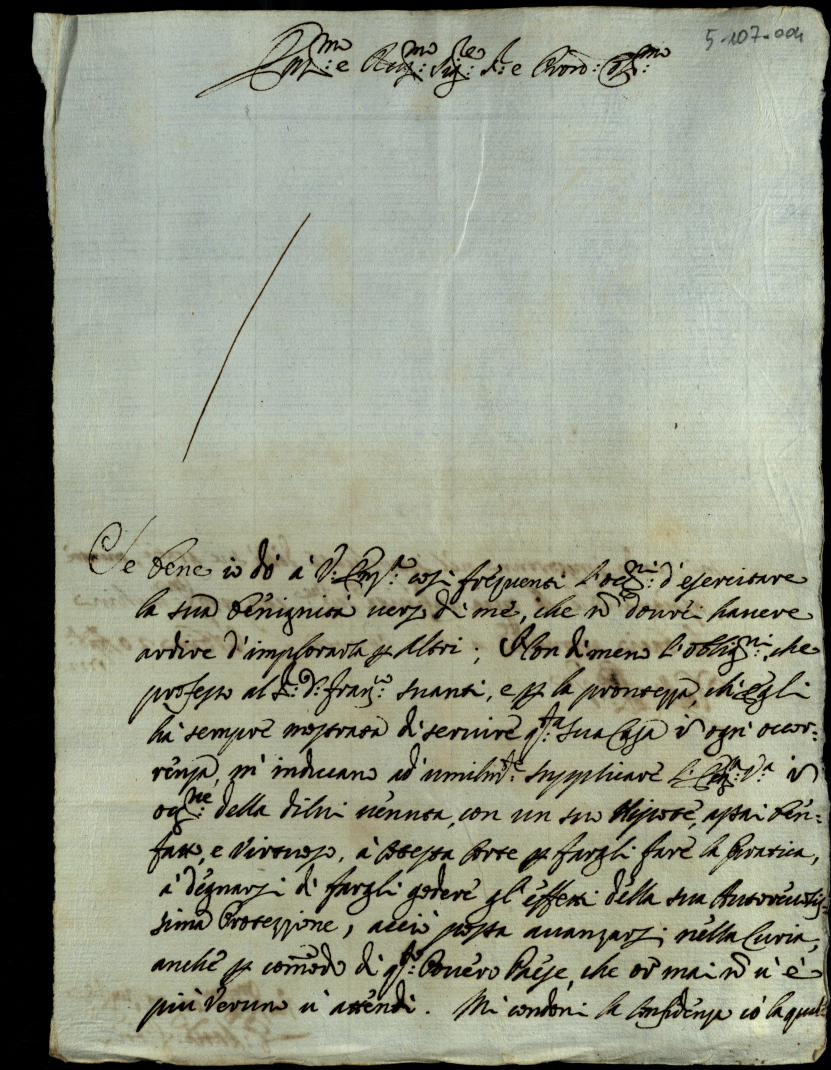 5-107-004
Em.mo e Rev.mo Sig.re S.r e Pron: Col.mo
Se bene io dò à V: Em.za così frequenti l'occ.ni d'esercitare
la sua benignità verso di me, che nõ dourei hauere
ardire d'implorarla p altri; Nondimeno l'oblig.ni, che
professo al S.r D. Fran.co Suanti, e p la prontezza, ch'egli
hà sempre mostrata di seruire q.ta sua Casa ĩ ogni occor=
renza, m'inducano ad umilm.te supplicare l'Em.za V.a ĩ
occ.ne della di lui uenuta, con un suo Nipote, assai ben
fatto, e Virtuoso, à cotesta Corte p fargli fare la Pratica,
à degnarsi di fargli godere gl'effetti della sua Autoreuolis=
sima Protezzione, acciò possa auanzarsi nella Curia,
anche p comodo di q.to Pouero Paese, che or mai nõ u'è
più Veruno u'attendi. Mi condoni la confidenza cõ la qual